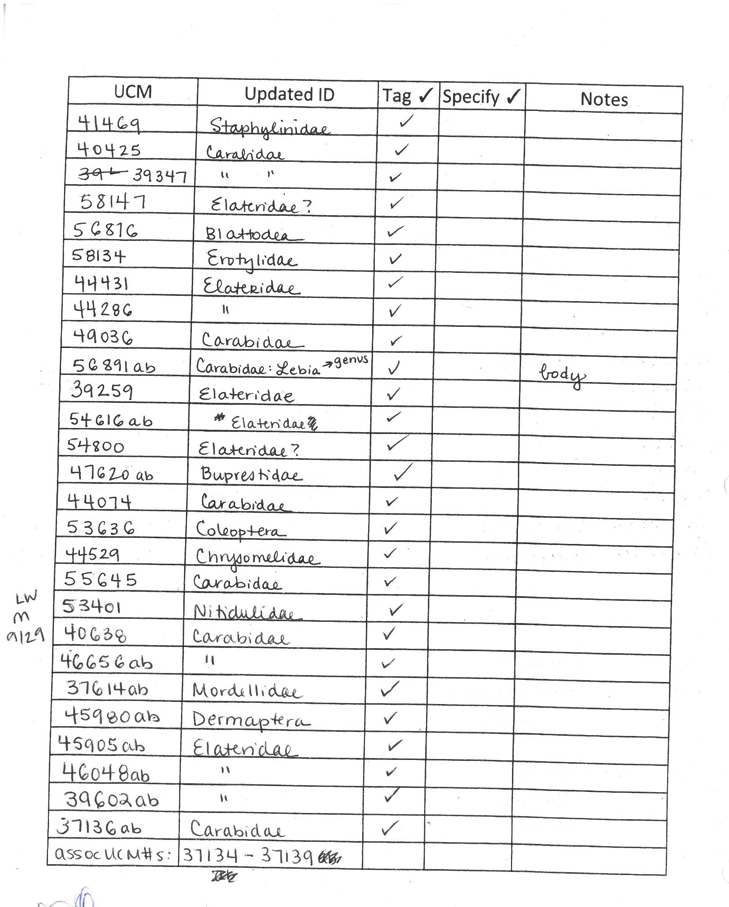 UCM Updated ID Tag ✓ Specify ✓ Notes
41469 Staphylinidae ✓
40425 Carabidae ✓
39347 " " ✓
58147 Elateridae? ✓
56816 Blattodea ✓
58134 Erotylidae ✓
44431 Elateridae ✓
44286 " ✓
49036 Carabidae ✓
56891ab Carabidae: Lebia → genus ✓ body
39259 Elateridae ✓
54616ab " Elateridae ✓
54800 Elateridae? ✓
47620ab Buprestidae ✓
44074 Carabidae ✓
53636 Coleoptera ✓
44529 Chrysomelidae ✓
55645 Carabidae ✓
53401 Nitidulidae ✓
LW
M
9/29
40638 Carabidae ✓
46656ab " ✓
37614ab Mordellidae ✓
45980ab Dermaptera ✓
45905ab Elateridae ✓
46048ab " ✓
39602ab " ✓
37136ab Carabidae ✓
assoc UCM#s: 37134 - 37139